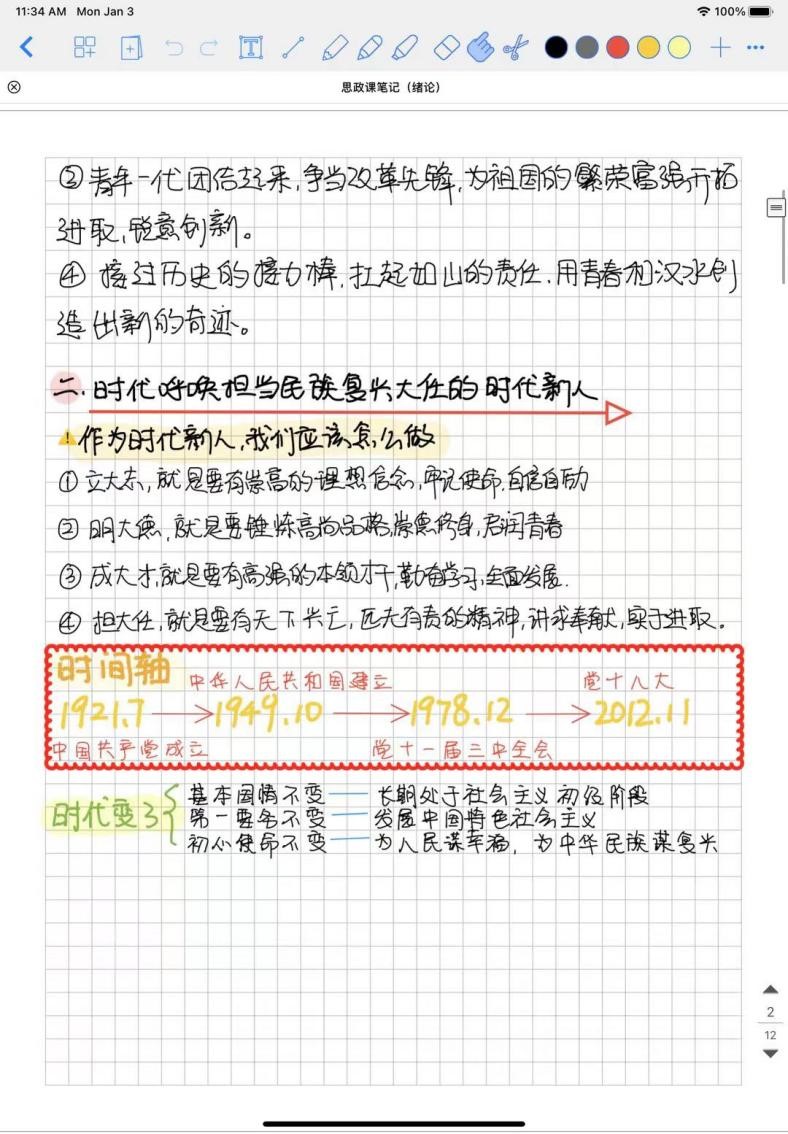 11:34 AM Mon Jan 3
100%
思政课笔记（绪论）
③青年一代团结起来,争当改革先锋,为祖国的繁荣富强开拓
进取,锐意创新。
④ 接过历史的接力棒,扛起如山的责任,用青春和汗水创
造出新的奇迹。
二.时代呼唤担当民族复兴大任的时代新人
作为时代新人,我们应该怎么做
①立大志,就是要有崇高的理想信念,牢记使命,自信自励
②明大德,就是要锤炼高尚品格,崇德修身,启润青春
③成大才,就是要有高强的本领才干,勤奋学习,全面发展.
④担大任,就是要有天下兴亡,匹夫有责的精神,讲求奉献,实干进取。
时间轴
中华人民共和国建立 党十八大
1921.7 → 1949.10 → 1978.12 → 2012.11
中国共产党成立 党十一届三中全会
基本国情不变——长期处于社会主义初级阶段
时代变了 第一要务不变——发展中国特色社会主义
初心使命不变——为人民谋幸福，为中华民族谋复兴
2
12